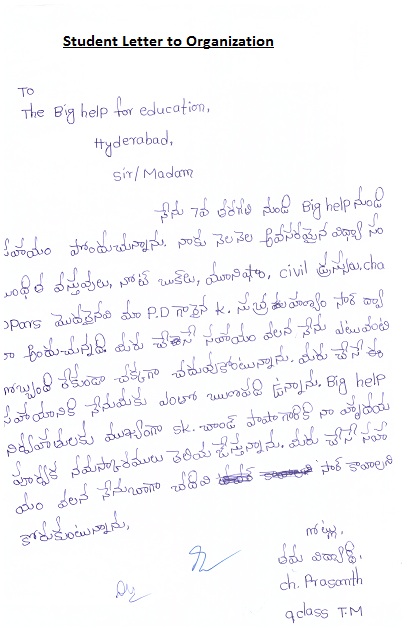 Student Letter to Organization
To
The Big help for education,
Hyderabad,
Sir/Madam
నేను 7వ తరగతి నుండి Big help నుండి
సహాయం పొందుచున్నాను. నాకు నెలనెల అవసరమైన విద్యా సం
బంధిత వస్తువులు, నోట్ బుక్‌లు, యూనిఫాం, civil డ్రస్సులు, cha
ppars మొదలైనవి మా P.D గారైన K. సుబ్రహ్మణ్యం సార్ ద్వా
రా అందుచున్నవి. మీరు చేసే సహాయం వలన నేను ఎటువంటి
ఇబ్బంది లేకుండా చక్కగా చదువుకొంటున్నాను. మీరు చేసే ఈ
సహాయానికి నేను మీకు ఎంతో ఋణపడి ఉన్నాను. Big help
నిర్వాహకులకు ముఖ్యంగా SK. చాంద్ పాషా గారికి నా హృదయ
పూర్వక నమస్కారములు తెలియజేస్తున్నాను. మీరు చేసే సహా
యం వలన నేను బాగా చదివి సార్ కావాలని
కోరుకుంటున్నాను,
ఇట్లు,
తమ విద్యార్థి,
ch. Prasanth
9class T.M